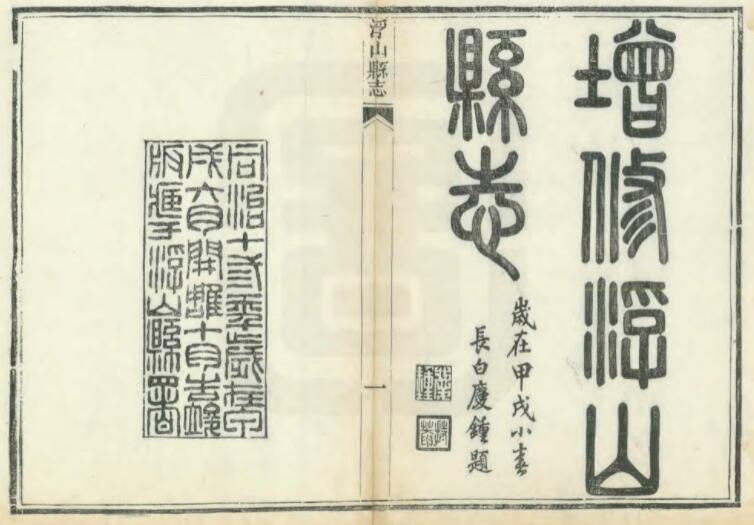 增修浮山
縣志
歲在甲戌小春
長白慶鍾題
浮山縣志
一
同治十弎年歲在甲
戌六月開雕十月告竣
版庋于浮山縣署